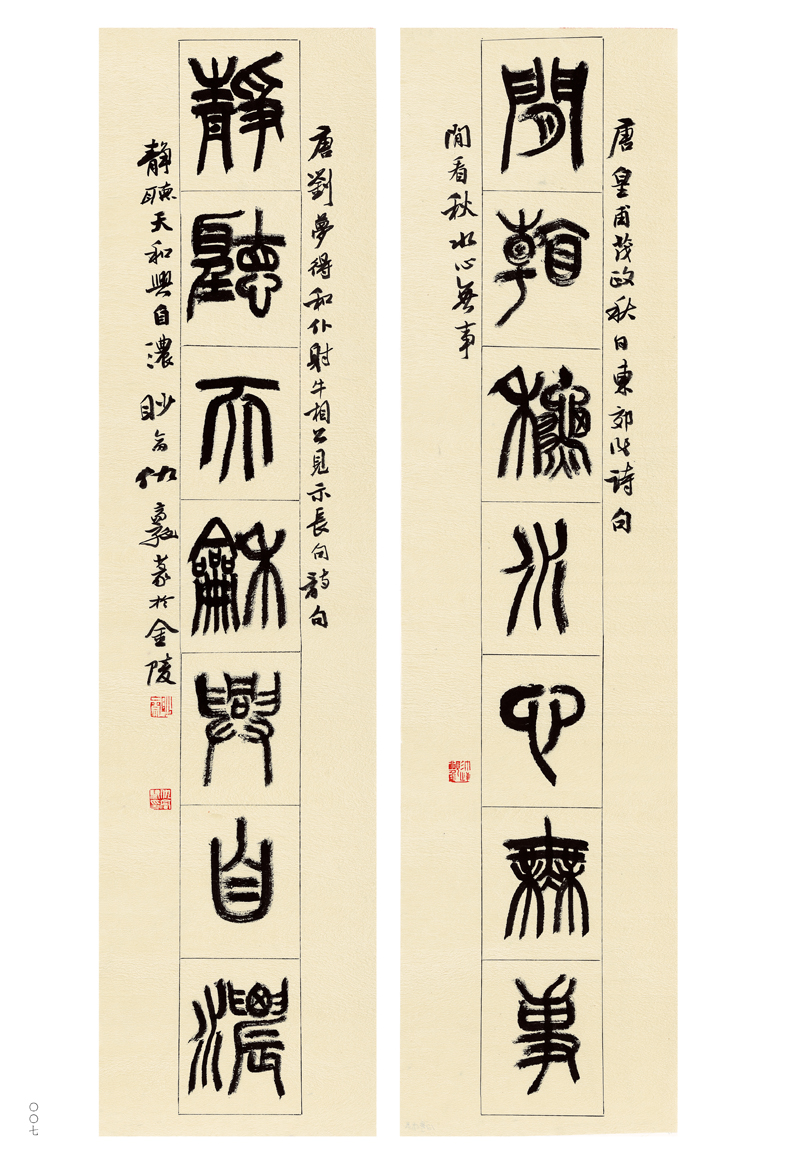 唐皇甫茂政秋日東郊作詩句
閒看秋水心無事
閒看秋水心無事
唐劉夢得和仆射牛相公見示長句詩句
靜聽天和興自濃
靜聽天和興自濃 於金陵
〇〇七